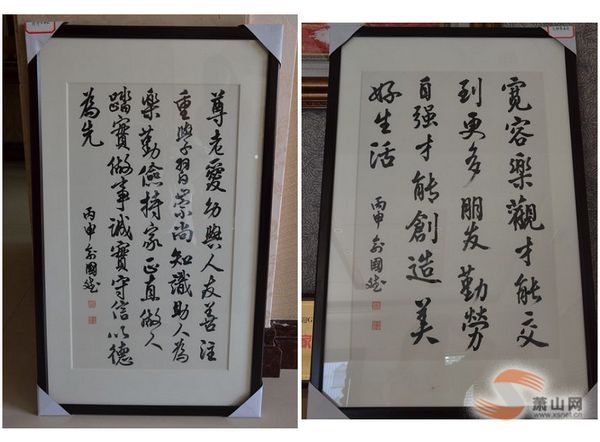 尊老愛幼與人友善注
重學習崇尚知識助人為
樂勤儉持家正直做人
踏實做事誠實守信以德
為先
丙申 俞國
寬容樂觀才能交
到更多朋友勤勞
自强才能創造美
好生活
丙申 俞國
萧山网
www.xsnet.cn